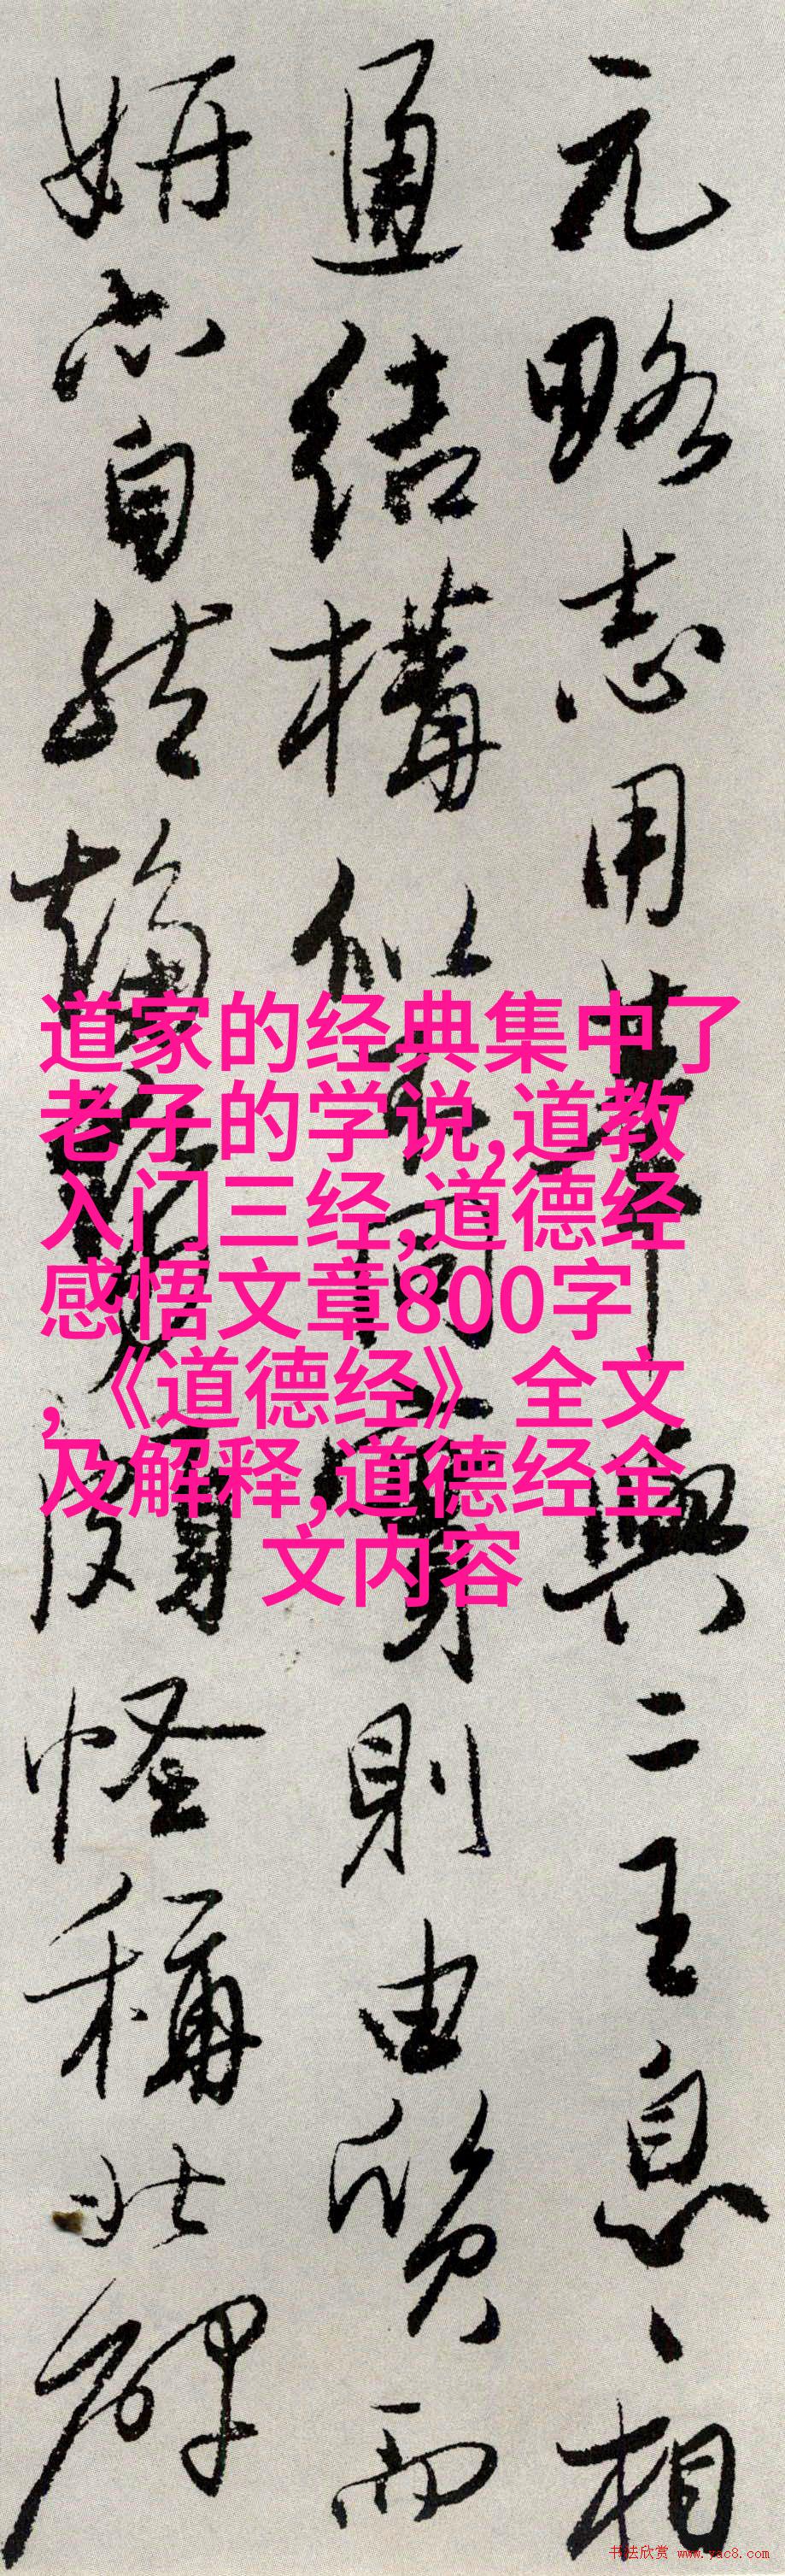 元略志用筆與二王息、相
通结構似同實則由質而
妍亦自然趋頗怪稱北碑
道家的经典集中了
老子的学说,道教
入门三经,道德经
感悟文章800字
,《道德经》全文
及解释,道德经全
文内容
书法欣赏 www.yac8.com